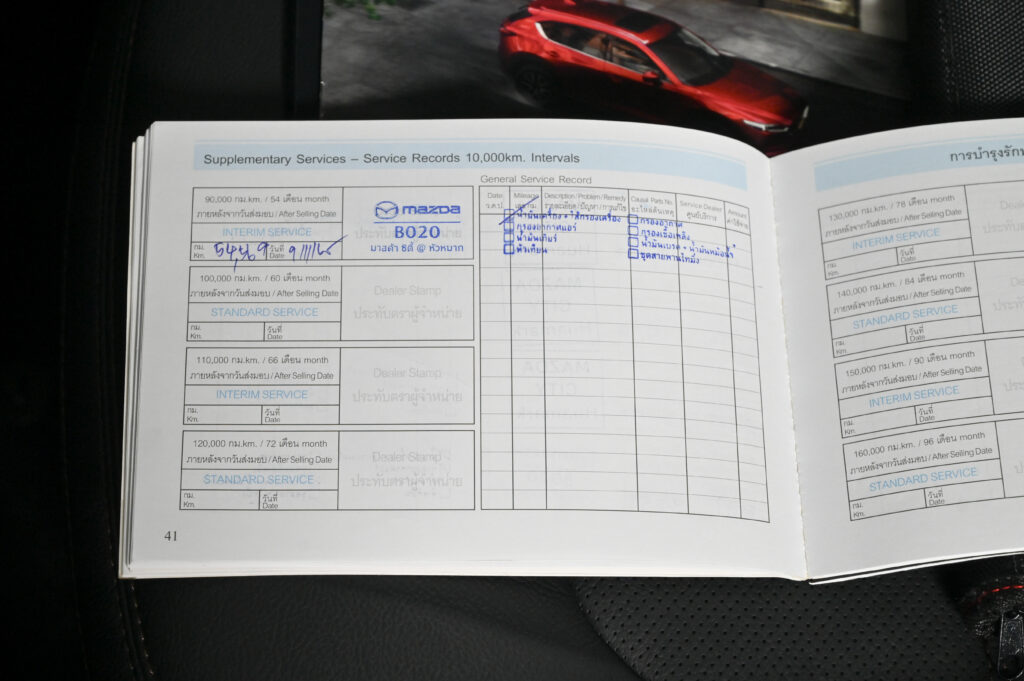 Supplementary Services – Service Records 10,000km. Intervals
90,000 กม.km. / 54 เดือน month
ภายหลังจากวันส่งมอบ / After Selling Date
INTERIM SERVICE
กม.
Km.
วันที่
Date
mazda
B020
มาสด้า ซิตี้ @ หัวหมาก
100,000 กม.km. / 60 เดือน month
ภายหลังจากวันส่งมอบ / After Selling Date
STANDARD SERVICE
กม.
Km.
วันที่
Date
Dealer Stamp
ประทับตราผู้จำหน่าย
110,000 กม.km. / 66 เดือน month
ภายหลังจากวันส่งมอบ / After Selling Date
INTERIM SERVICE
กม.
Km.
วันที่
Date
Dealer Stamp
ประทับตราผู้จำหน่าย
120,000 กม.km. / 72 เดือน month
ภายหลังจากวันส่งมอบ / After Selling Date
STANDARD SERVICE
กม.
Km.
วันที่
Date
Dealer Stamp
ประทับตราผู้จำหน่าย
41
General Service Record
Date
ว.ด.ป.
Mileage
Description / Problem / Remedy
รายละเอียด / ปัญหา / การแก้ไข
Causal Parts No.
อะไหล่ต้นเหตุ
Service Dealer
ศูนย์บริการ
Amount
ค่าใช้จ่าย
น้ำมันเครื่อง + ไส้กรองเครื่อง
กรองอากาศแอร์
น้ำมันเกียร์
หัวเทียน
กรองอากาศ
กรองเชื้อเพลิง
น้ำมันเบรค + น้ำมันหม้อน้ำ
ชุดสายพานไทม์มิ่ง
การบำรุงรักษ
130,000 กม.km. / 78 เดือน month
ภายหลังจากวันส่งมอบ / After Selling Date
INTERIM SERVICE
กม.
Km.
วันที่
Date
140,000 กม.km. / 84 เดือน month
ภายหลังจากวันส่งมอบ / After Selling Date
STANDARD SERVICE
กม.
Km.
วันที่
Date
150,000 กม.km. / 90 เดือน month
ภายหลังจากวันส่งมอบ / After Selling Date
INTERIM SERVICE
กม.
Km.
วันที่
Date
160,000 กม.km. / 96 เดือน month
ภายหลังจากวันส่งมอบ / After Selling Date
STANDARD SERVICE
กม.
Km.
วันที่
Date